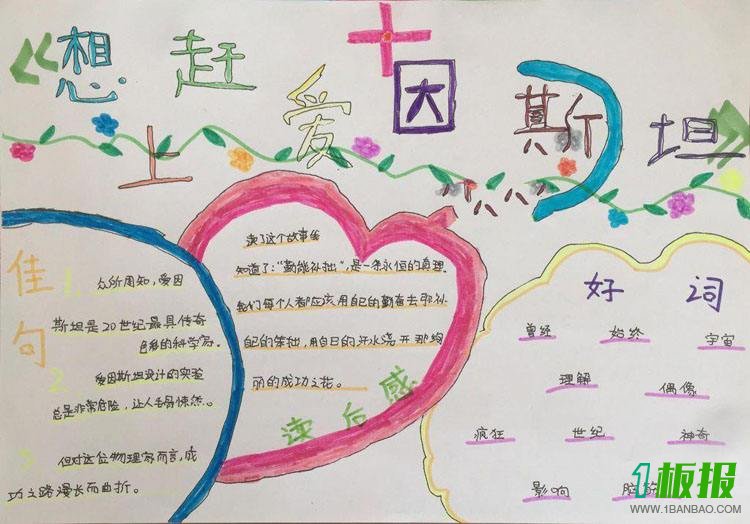 《想赶上爱因斯坦》
佳句
1. 众所周知,爱因
斯坦是20世纪最具传奇
色彩的科学家。
2 爱因斯坦设计的实验
总是非常危险,让人毛骨悚然。
3 但对这位物理家而言,成
功之路漫长而曲折。
读了这个故事我
知道了:“勤能补拙”,是一条永恒的真理。
我们每个人都应该用自己的勤奋去弥补
自己的笨拙,用自己的汗水浇开那绚
丽的成功之花。
读后感
好词
曾经 始终 宇宙
理解 偶像
疯狂 世纪 神奇
影响
1板报
WWW.1BANBAO.COM